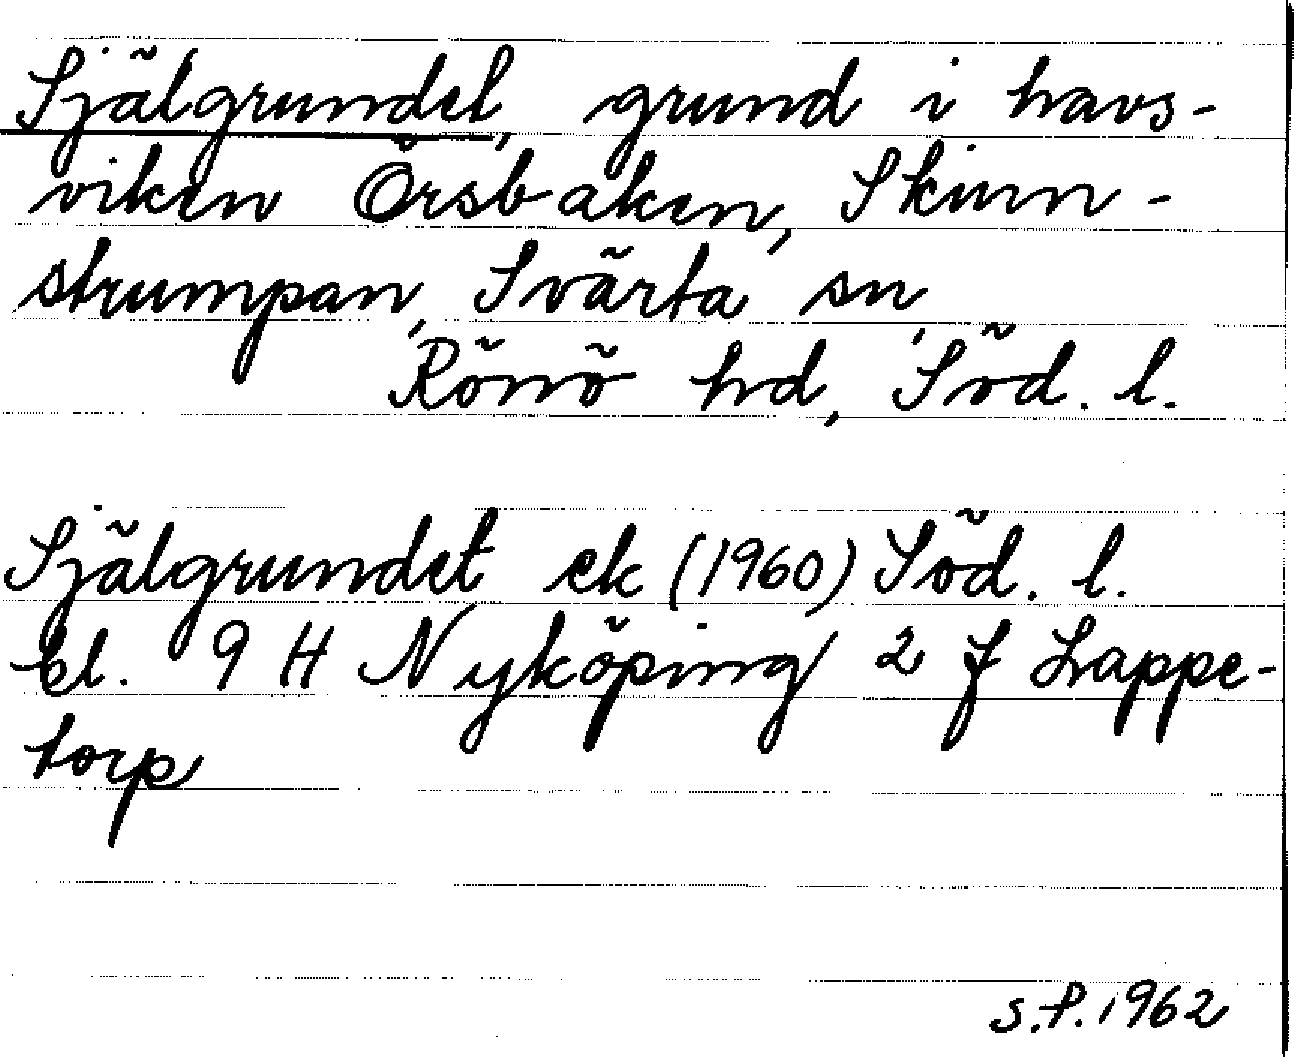 Själgrundet, grund i havs-
viken Örsbaken, Skinn-
strumpan, Svärta sn,
Rönö hd, Söd. l.
Själgrundet ek (1960) Söd. l.
bl. 9 H Nyköping 2 f Lappe-
torp
S.P. 1962